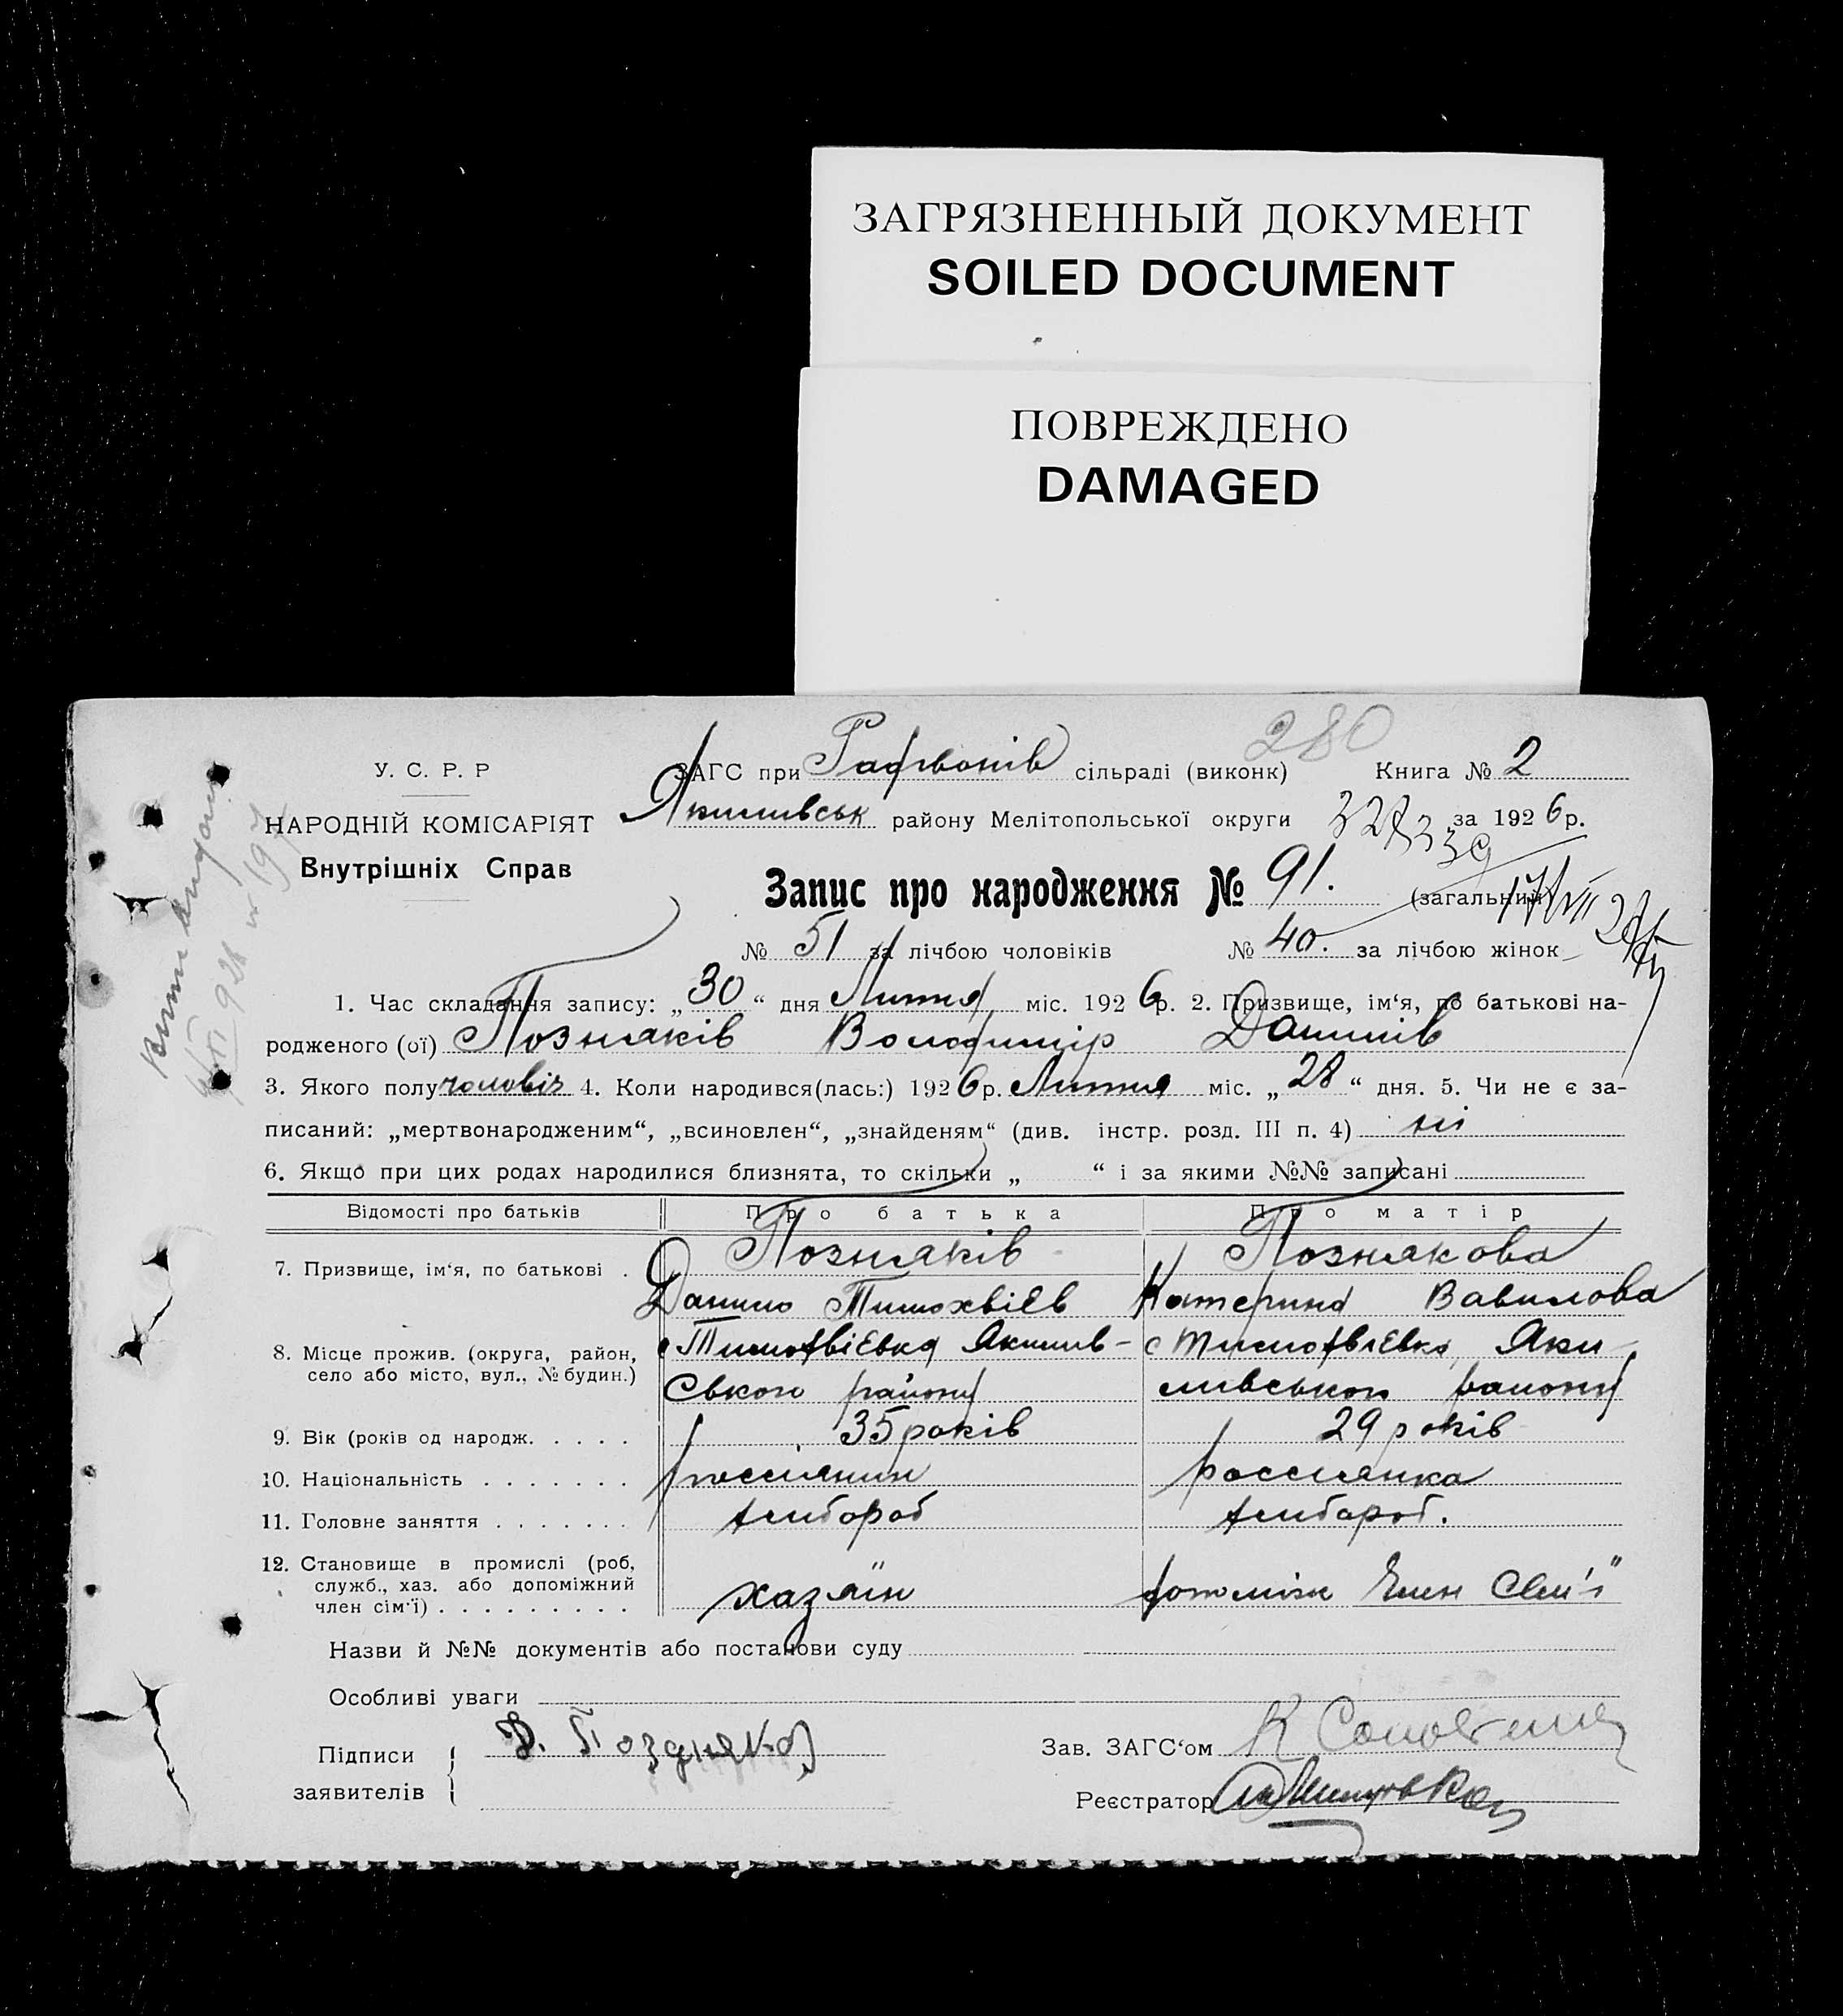 ЗАГРЯЗНЕННЫЙ ДОКУМЕНТ
SOILED DOCUMENT
ПОВРЕЖДЕНО
DAMAGED
280
У. С. Р. Р
НАРОДНІЙ КОМІСАРІЯТ
Внутрішніх Справ
ЗАГС при сільраді (виконк) Книга № 2
Якимівськ району Мелітопольської округи за 1926 р.
Запис про народження № 91. (загальний)
№ 51 за лічбою чоловіків № 40. за лічбою жінок
1. Час складання запису: „30“ дня Липня міс. 1926 р. 2. Призвище, ім‘я, по батькові на-
родженого (ої) Позняків Володимір Данилів
3. Якого полу чоловіч 4. Коли народився(лась:) 1926 р. Липня міс. „28“ дня. 5. Чи не є за-
писаний: „мертвонародженим“, „всиновлен“, „знайденям“ (див. інстр. розд. III п. 4) ні
6. Якщо при цих родах народилися близнята, то скільки „ “ і за якими №№ записані
Відомості про батьків Про батька Про матір
7. Призвище, ім‘я, по батькові . Позняків Познякова
Данило Тимохвієв Катерина Вавилова
8. Місце прожив. (округа, район, село або місто, вул., № будин.) с Тимофвієвка Якимів- с Тимофвієвка, Яки-
ського району мивського району
9. Вік (років од народж. . . . . 35 років 29 років
10. Національність . . . . . . . россиянин россиянка
11. Головне заняття . . . . . . . хлібороб хлібороб.
12. Становище в промислі (роб, служб., хаз. або допоміжний член сім‘ї) . . . . . . . . . хазяїн допоміжн член Сем'ї
Назви й №№ документів або постанови суду
Особливі уваги
Підписи заявителів Д. Поздняков
Зав. ЗАГС‘ом К
Реєстратор